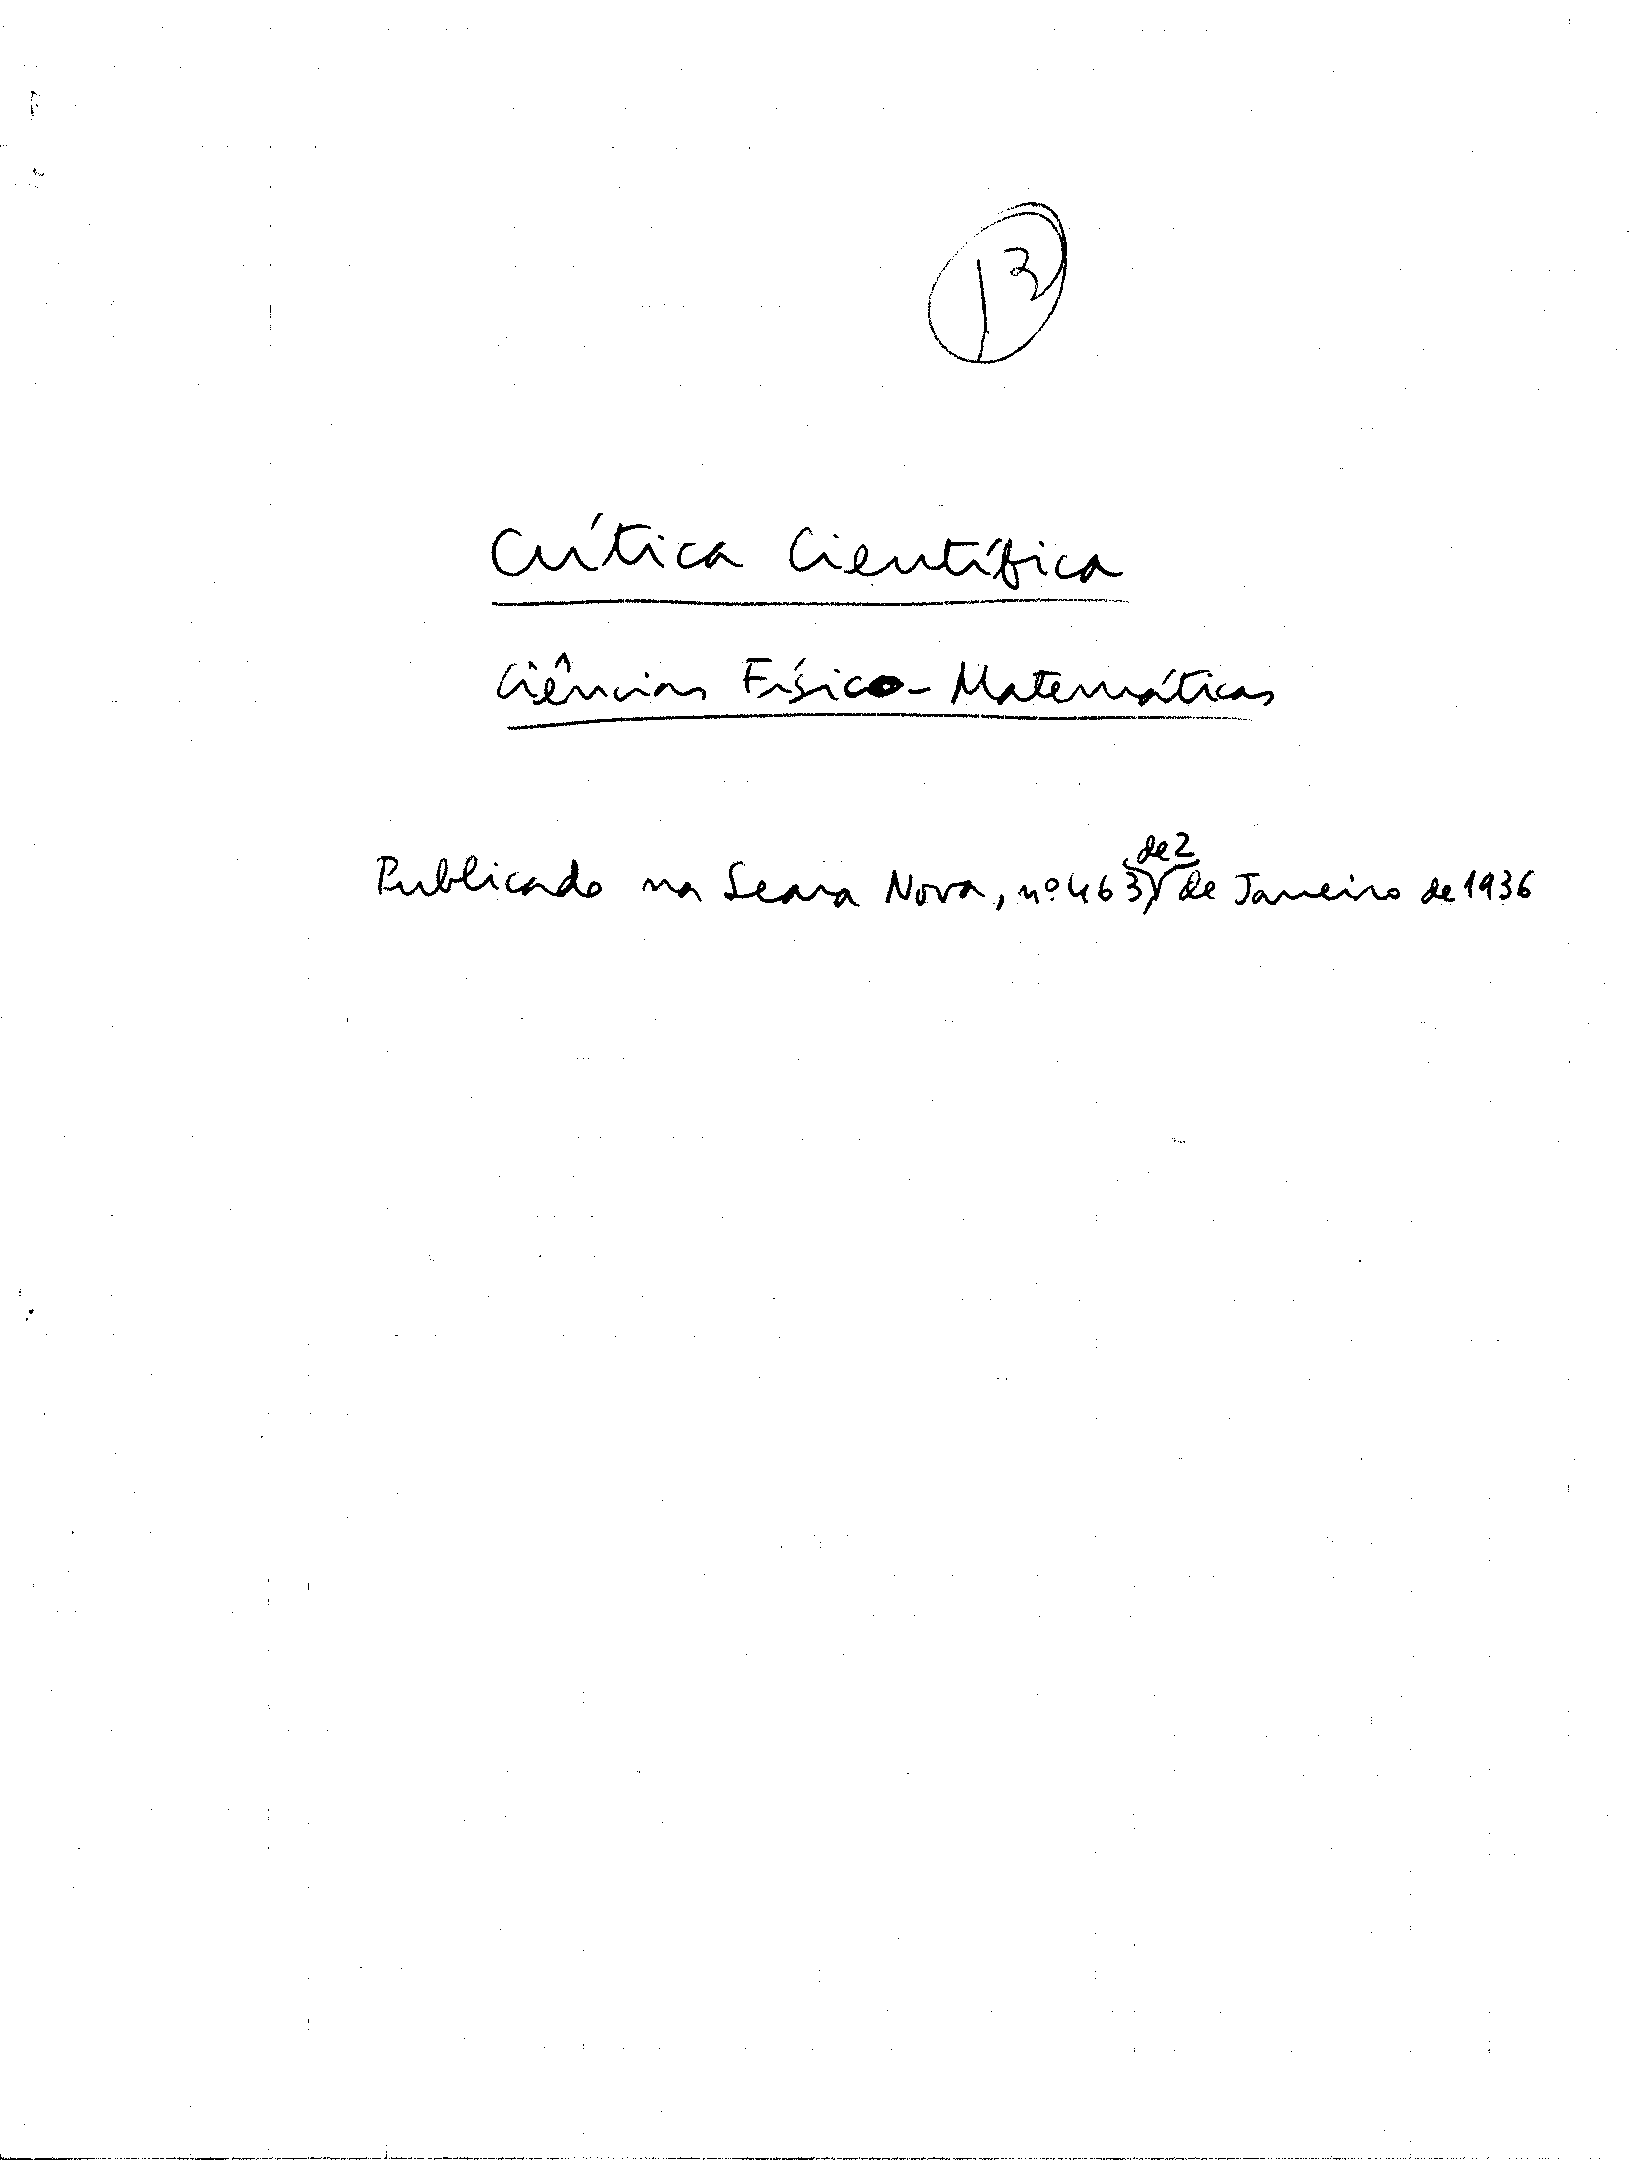 13
Crítica Científica
Ciências Físico-Matemáticas
Publicado na Seara Nova, nº 463, de 2 de Janeiro de 1936